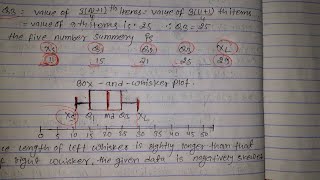 Q3 = value of 3(N+1)th items = value of 3(11+1)th items
= value of 9th items is = 25 ∴ Q3 = 25
the five number summery is
XS Q1 Q2 Q3 XL
11 15 21 25 29
Box - and - whisker plot.
XS Q1 Md Q3 XL
0 5 10 15 20 25 30 35 40 45 50
length of left whisker is slightly longer than that
right whisker, the given data is negatively skewed